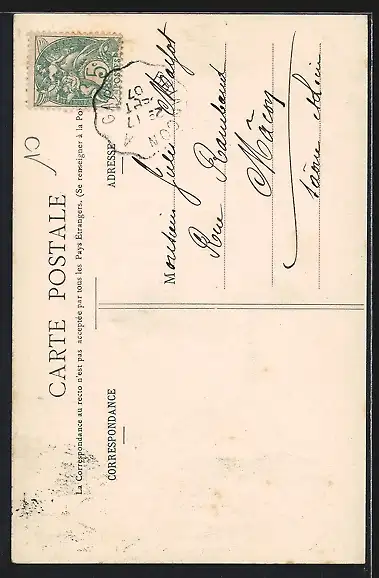 CARTE POSTALE
La Correspondance au recto n'est pas acceptée par tous les Pays Etrangers. (Se renseigner à la Po
CORRESPONDANCE
ADRESSE
Monsieur Jules
Rue Rambuteau
Mâcon
Saône et Loire
5